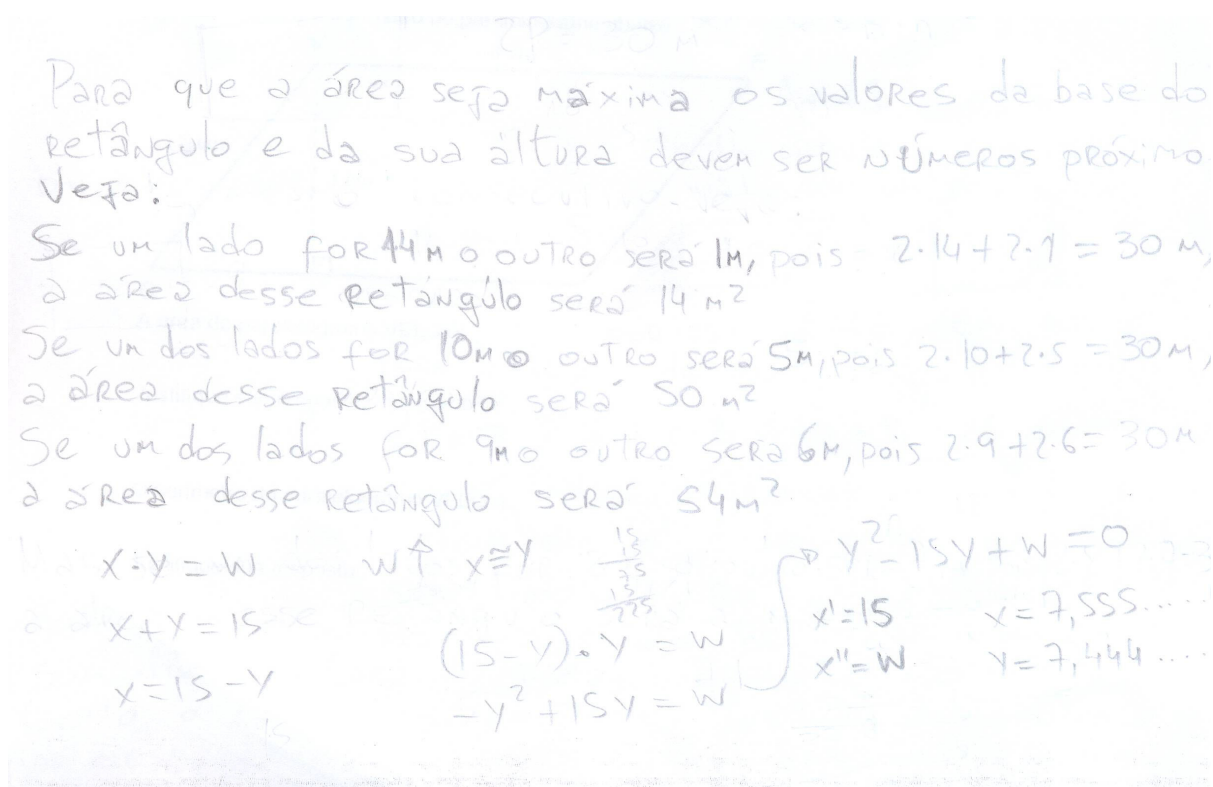 2P = 30 M
Para que a área seja máxima os valores da base do
retângulo e da sua áltura devem ser números próximo
Veja:
Se um lado for 14 m o outro será 1m, pois 2.14+2.1 = 30 m,
a área desse retângúlo será 14 m²
Se um dos lados for 10m o outro será 5m, pois 2.10+2.5 = 30m,
a área desse retângulo será 50 m²
Se um dos lados for 9m o outro sera 6m, pois 2.9+2.6= 30m
a área desse retângulo será 54m².
x.y = w w↑ x≅y 15 15 75 15 225 y²-15y+w=0
x+y=15 (15-y).y = w x'=15 x=7,555.....
x=15-y -y²+15y=w x''=w. y=7,444....